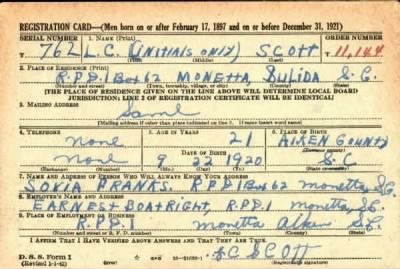 REGISTRATION CARD—(Men born on or after February 17, 1897 and on or before December 31, 1921)
SERIAL NUMBER 1. NAME (Print) ORDER NUMBER
762 L.C. (INITIALS ONLY) SCOTT 11,144
(First) (Middle) (Last)
2. PLACE OF RESIDENCE (Print)
R.P.D.1 Box 62 MONETTA, SULIDA S.C.
(Number and street) (Town, township, village, or city) (County) (State)
[THE PLACE OF RESIDENCE GIVEN ON THE LINE ABOVE WILL DETERMINE LOCAL BOARD
JURISDICTION; LINE 2 OF REGISTRATION CERTIFICATE WILL BE IDENTICAL]
3. MAILING ADDRESS
Same
[Mailing address if other than place indicated on line 2. If same insert word same]
4. TELEPHONE 5. AGE IN YEARS 6. PLACE OF BIRTH
None 21 AIKEN COUNTY
DATE OF BIRTH (Town or county)
None 9 22 1920 S.C.
7. NAME AND ADDRESS OF PERSON WHO WILL ALWAYS KNOW YOUR ADDRESS
SOVIA FRANKS. R.P.D1 Box 62 Monetta, S.C.
8. EMPLOYER'S NAME AND ADDRESS
EARNEST BOATRIGHT, R.P.D.1 Monetta, S.C.
9. PLACE OF EMPLOYMENT OR BUSINESS
R.P.D.1 Monetta Aiken S.C.
(Number and street or R. F. D. number) (Town) (County) (State)
I AFFIRM THAT I HAVE VERIFIED ABOVE ANSWERS AND THAT THEY ARE TRUE.
D. S. S. Form 1 L C SCOTT
(Revised 5-1-42) (Registrant's signature)